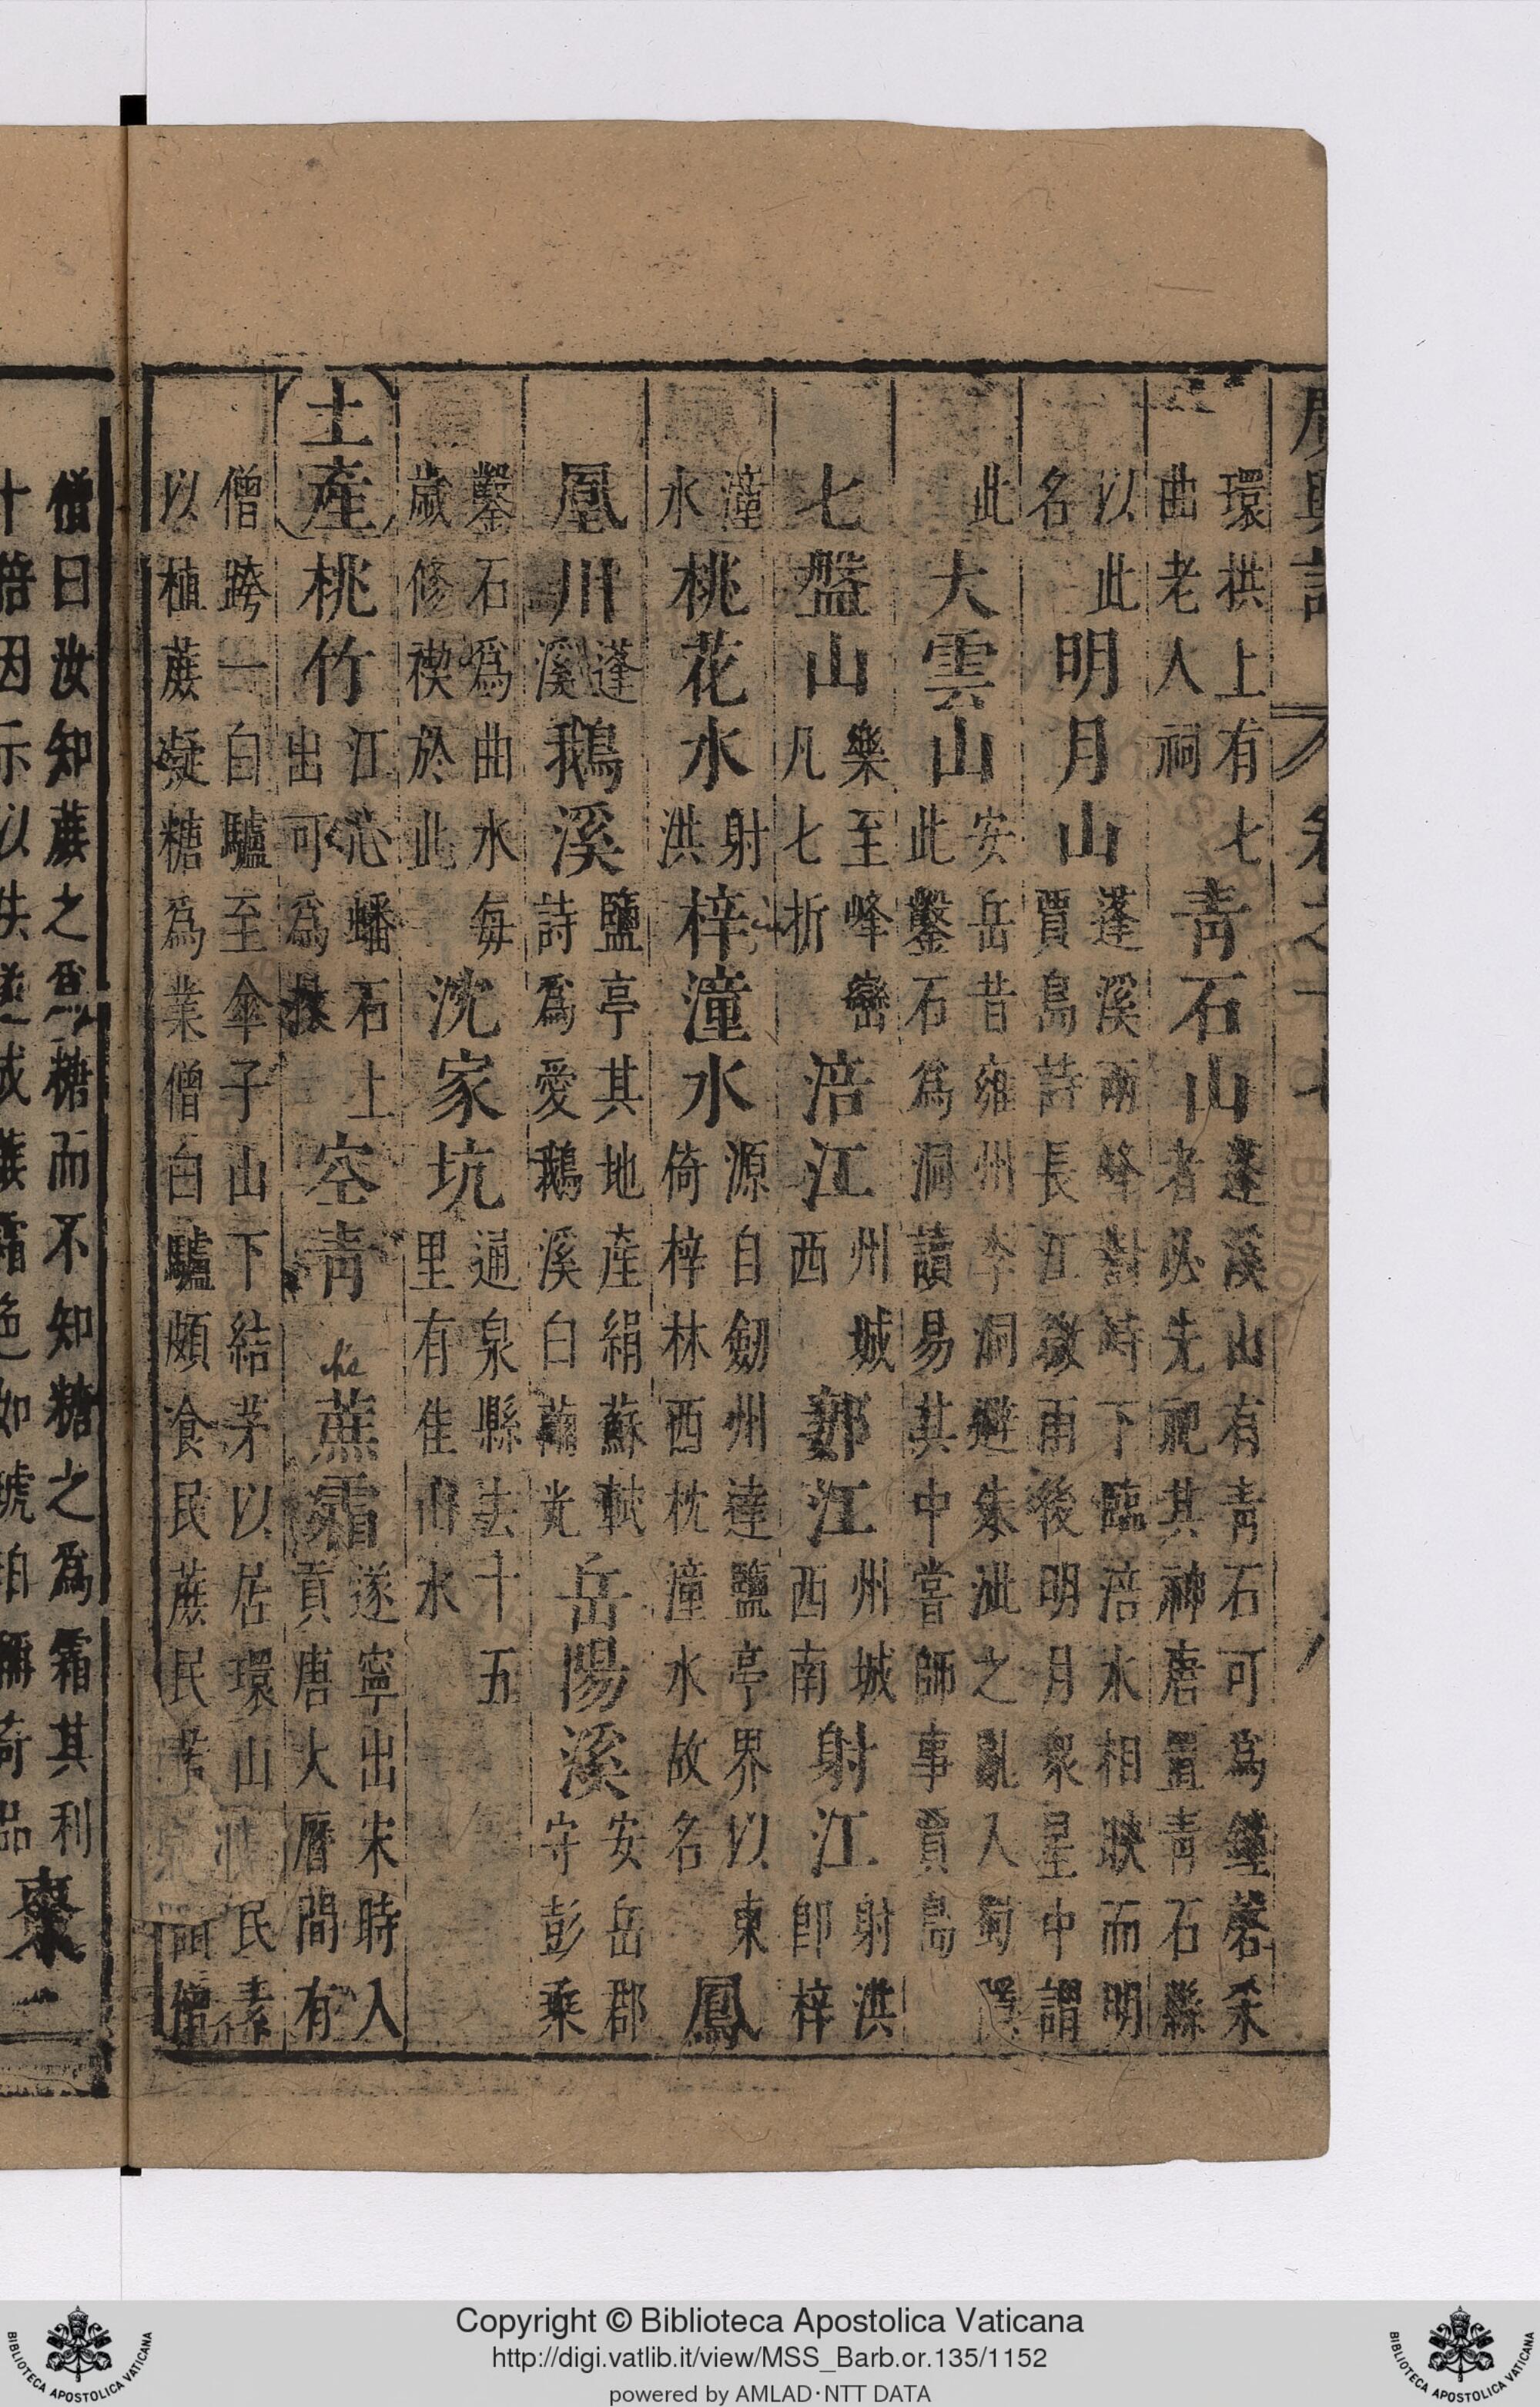 廣輿記 卷之十七
環拱上有七
曲老人祠
青石山
蓬溪山有青石可為鐘磬采
者必先祝其神唐置青石縣
以此
名
明月山
蓬溪兩峰對峙下臨涪水相映而明
賈島詩長江微雨後明月衆星中謂
此
大雲山
安岳昔雍州李洞避朱泚之亂入蜀
此鑿石為洞讀易其中嘗師事賈島
七盤山
樂至峰巒
凡七折
涪江
州城
西
郪江
州城
西南
射江
射洪
即梓
潼
水
桃花水
射
洪
梓潼水
源自劒州達鹽亭界以東
倚梓林西枕潼水故名
鳳
凰川
蓬
溪
鵝溪
鹽亭其地產絹蘇軾
詩為愛鵝溪白繭光
岳陽溪
安岳郡
守彭乘
鑿石爲曲水每
歲修禊於此
沈家坑
通泉縣去十五
里有佳山水
土產
桃竹
江心蟠石上
出可為杖
空青
蔗霜
遂寧出宋時入
貢唐大曆間有
僧跨一白驢至傘子山下結茅以居環山民素
以植蔗凝糖為業僧白驢頗食民蔗民僧
僧曰汝知蔗之為糖而不知糖之為霜其利
十倍因示以法遂成蔗霜色如琥珀稱奇品
棗
Copyright © Biblioteca Apostolica Vaticana
http://digi.vatlib.it/view/MSS_Barb.or.135/1152
powered by AMLAD·NTT DATA
BIBLIOTECA APOSTOLICA VATICANA
BIBLIOTECA APOSTOLICA VATICANA